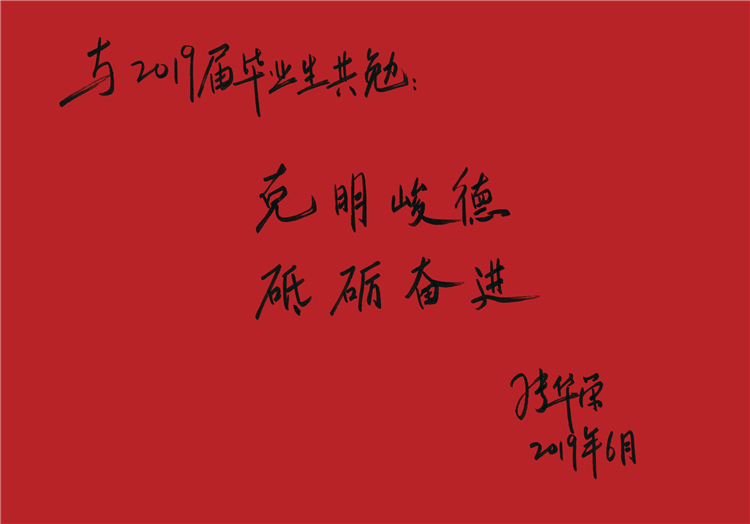 与2019届毕业生共勉：
克明峻德
砥砺奋进
张华荣
2019年6月